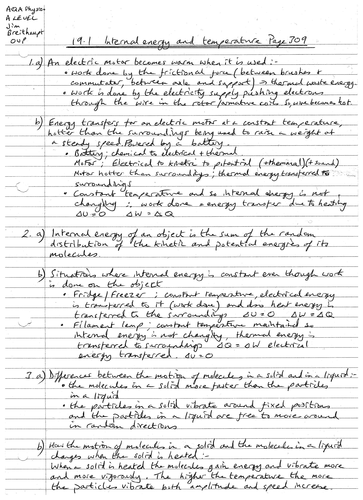 AQA Physics
A LEVEL
Jim
Breithaupt
OUP
19.1 Internal energy and temperature Page 309
1.a) An electric motor becomes warm when it is used :-
• Work done by the frictional force (between brushes &
commutator, between axle and support) → thermal waste energy.
• Work is done by the electricity supply pushing electrons
through the wire in the rotor/armature coils. So, wire becomes hot.
b) Energy transfers for an electric motor at a constant temperature,
hotter than the surroundings being used to raise a weight at
a steady speed. Powered by a battery.
• Battery; chemical to electrical + thermal
Motor; Electrical to kinetic to potential (+thermal)(+sound)
Motor hotter than surroundings; thermal energy transferred to
surroundings
• Constant temperature and so internal energy is not
changing ∴ work done = energy transfer due to heating
ΔU=0 ΔW=ΔQ
2. a) Internal energy of an object is the sum of the random
distribution of the kinetic and potential energies of its
molecules.
b) Situations where internal energy is constant even though work
is done on the object
• Fridge/Freezer ; constant temperature, electrical energy
is transferred to it (work done) and also heat energy is
transferred to the surroundings ΔU=0 ΔW=ΔQ
• Filament lamp; constant temperature maintained so
internal energy is not changing, thermal energy is
transferred to surroundings ΔQ=ΔW electrical
energy transferred. ΔU=0
3.a) Differences between the motion of molecules in a solid and in a liquid :-
• the molecules in a solid move faster than the particles
in a liquid
• the particles in a solid vibrate around fixed positions
and the particles in a liquid are free to move around
in random directions
b) How the motion of molecules in a solid and the molecules in a liquid
changes when the solid is heated :-
When a solid is heated the molecules gain energy and vibrate more
and more vigorously. The higher the temperature the more
the particles vibrate both amplitude and speed increase.